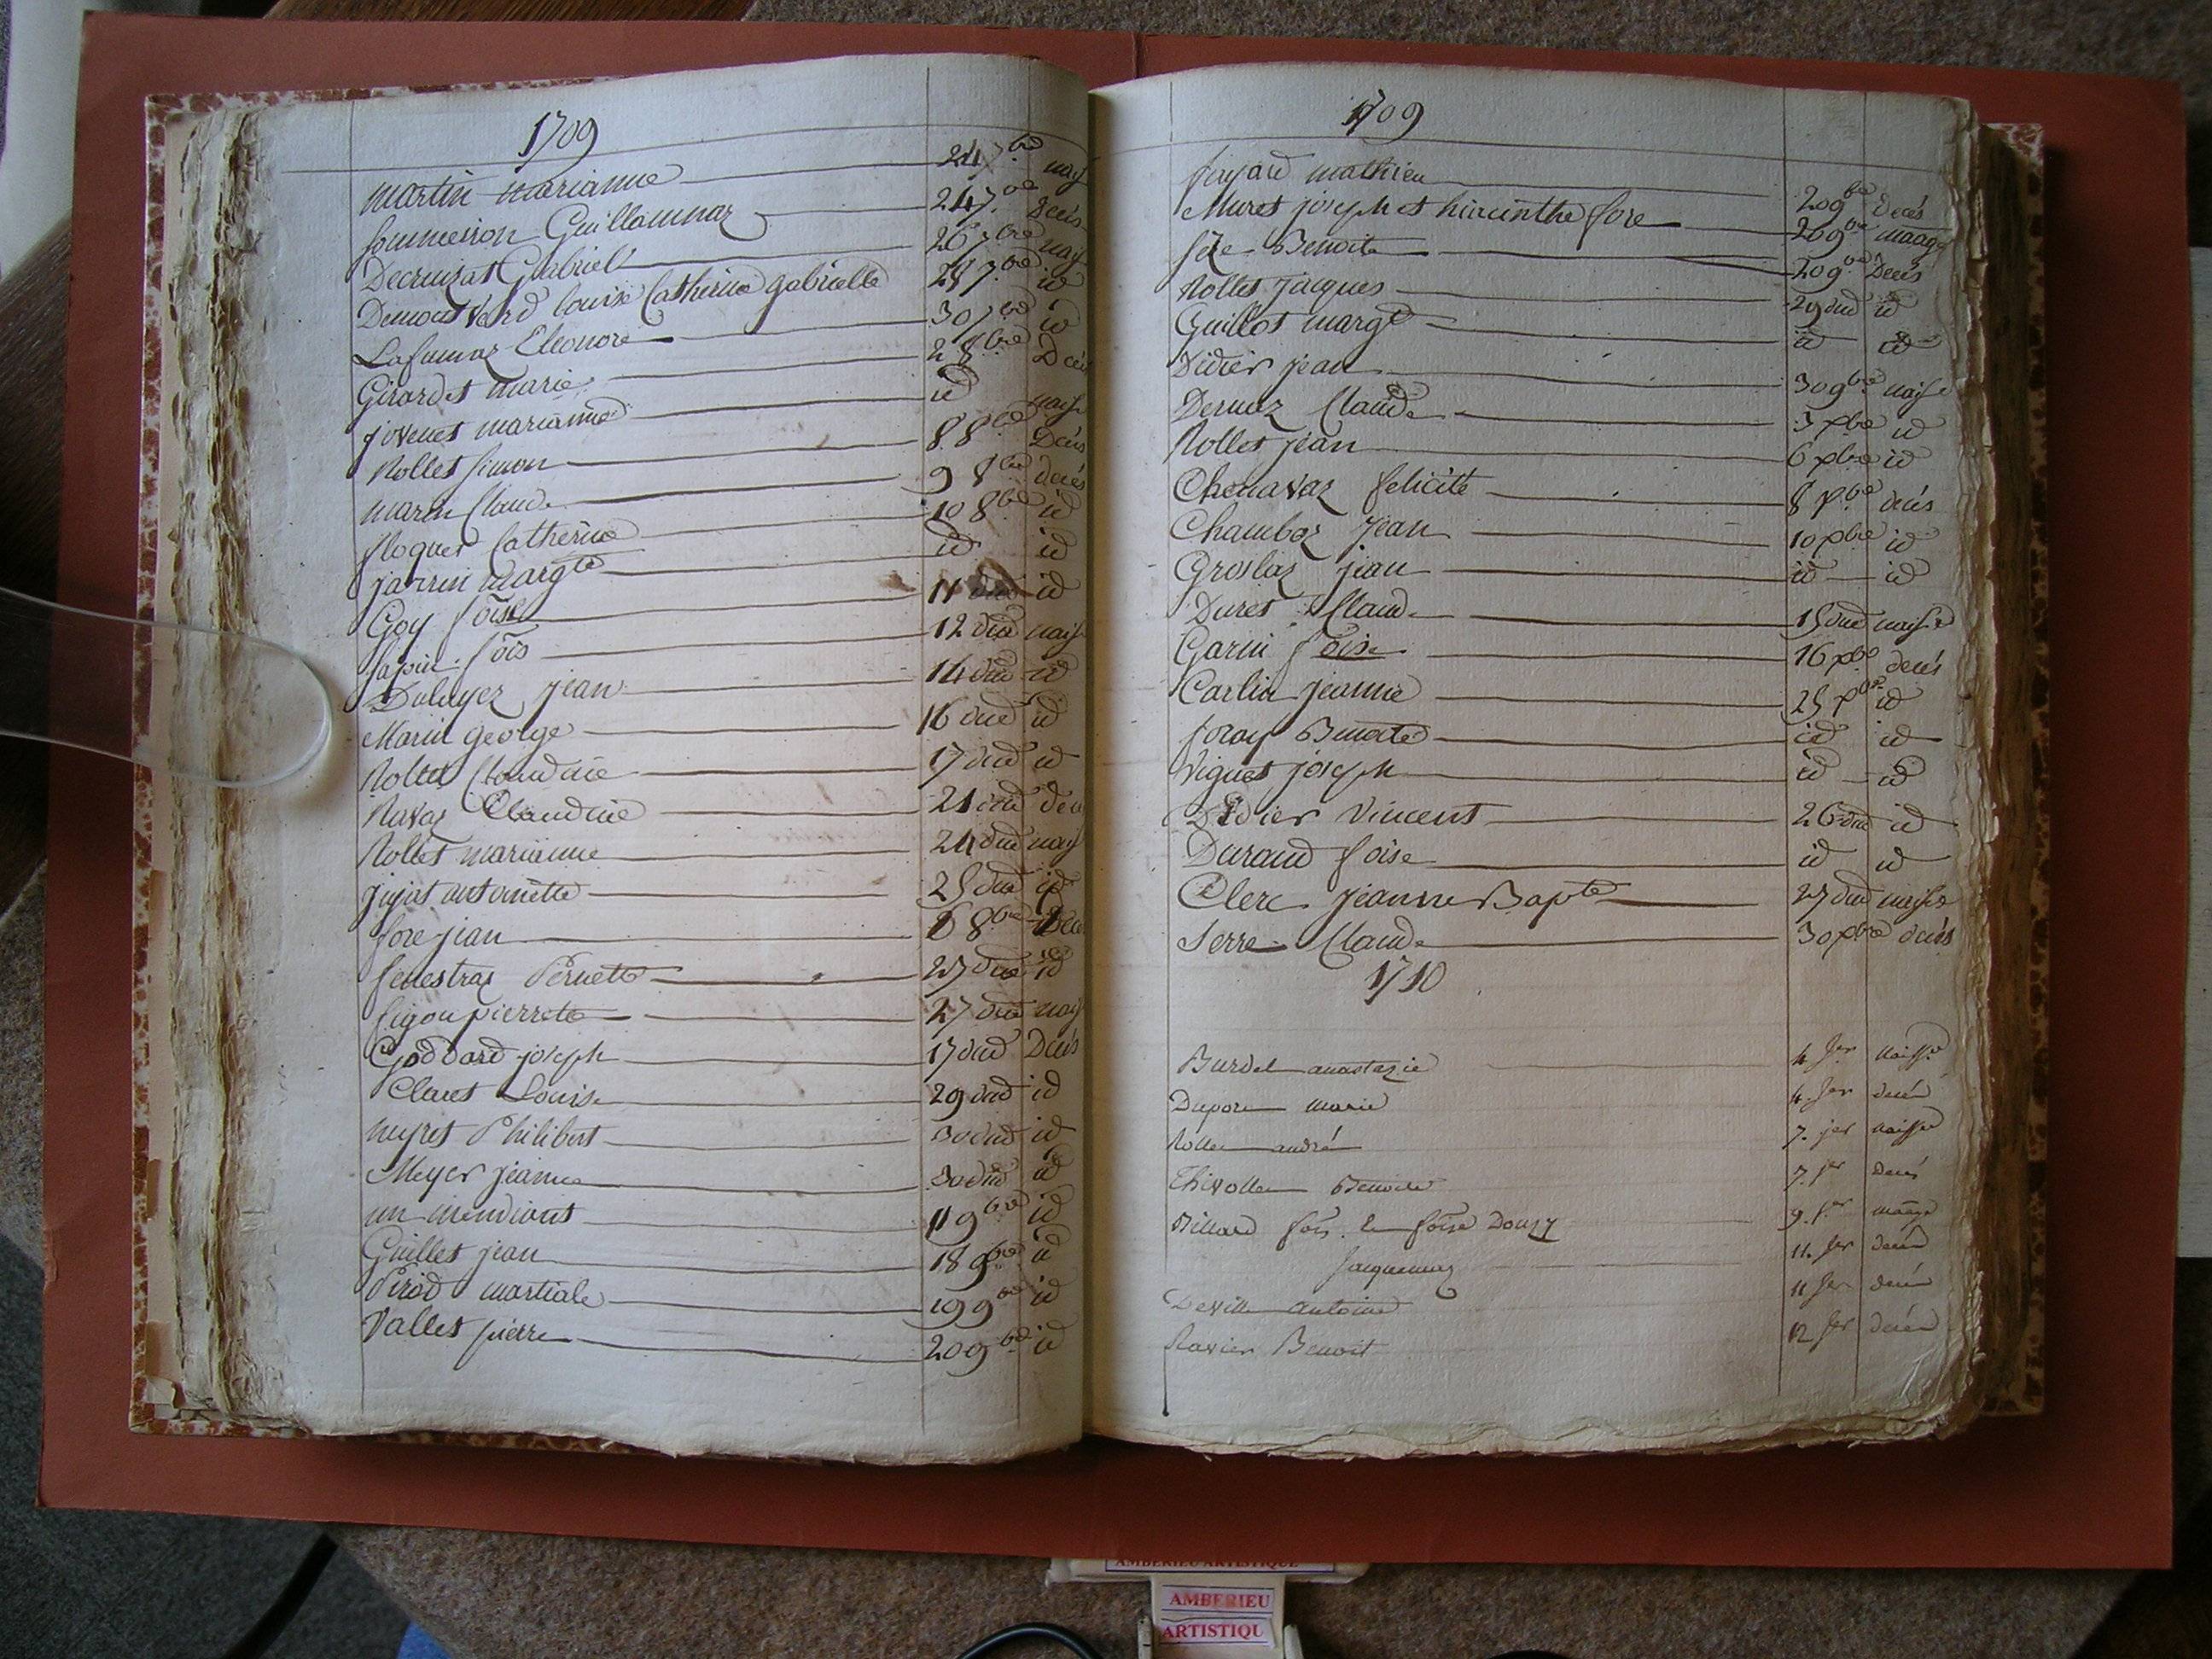 1709
martin marianne 24 7bre nais
Guillaumaz 24 7bre Decés
Gabriel 26 7bre nais
louise Catherine gabrielle 28 7bre id
Lafumaz Eleonore 30 7bre id
Girardet marie 2 8bre Deces
jovenet marianne id naise
Rollet simon 8 8bre Decés
marin Claude 9 8bre decés
floquet Catherine 10 8bre id
janin Margte id id
Goy foise 11 dud id
sapin fois 12 dud naise
jean 14 dud id
Marin george 16 dud id
Rollet Claudine 17 dud id
Ravaz Claudine 21 dud dec
Rollet marianne 24 dud nais
jujat antoinette 25 dud id
fore jean 8bre Dec
fenestraz Pernette 27 dud id
pierrete 27 dud nais
Goddard joseph 17 dud Decés
Claret Louise 29 dud id
neyret Philibert 30 dud id
Meyer jeanne 30 dud id
un mendiant 11 9bre id
Guillet jean 18 9bre id
Pirod martiale 19 9bre id
Vallet pierre 20 9bre id
1709
fayard mathieu 20 9bre decés
Muret joseph et hiacinthe fore 20 9bre maage
Benoite 20 9bre Decés
Rollet jacques 29 dud id
Guillot margte id id
Didier jean 30 9bre naise
Dernaz Claude 3 xbre id
Rollet jean 6 xbre id
Chenavaz felicité 8 xbre decés
Chamboz jean 10 xbre id
Groslaz jean id id
Duret Claude 15 dud naise
Garin foise 16 xbre decés
Carlin jeanne 25 xbre id
foray Benoite id id
Viguet joseph id id
Didier Vincent 26 dud id
Durand foise id id
Clerc jeanne Bapte 27 dud naise
Serre Claude 30 xbre decés
1710
Burdet anastazie 4 jer naisse
Duport marie 4 jer decéd
Rollet andré 7 jer naisse
Thevollet Benoite 7 jer decés
Billard fois et foise Douzy 9 jer maage
Jacquemaz 11 jer decéd
Deville antoine 11 jer decéd
Ravier Benoit 12 jer decéd
AMBERIEU ARTISTIQUE
AMBERIEU
ARTISTIQU